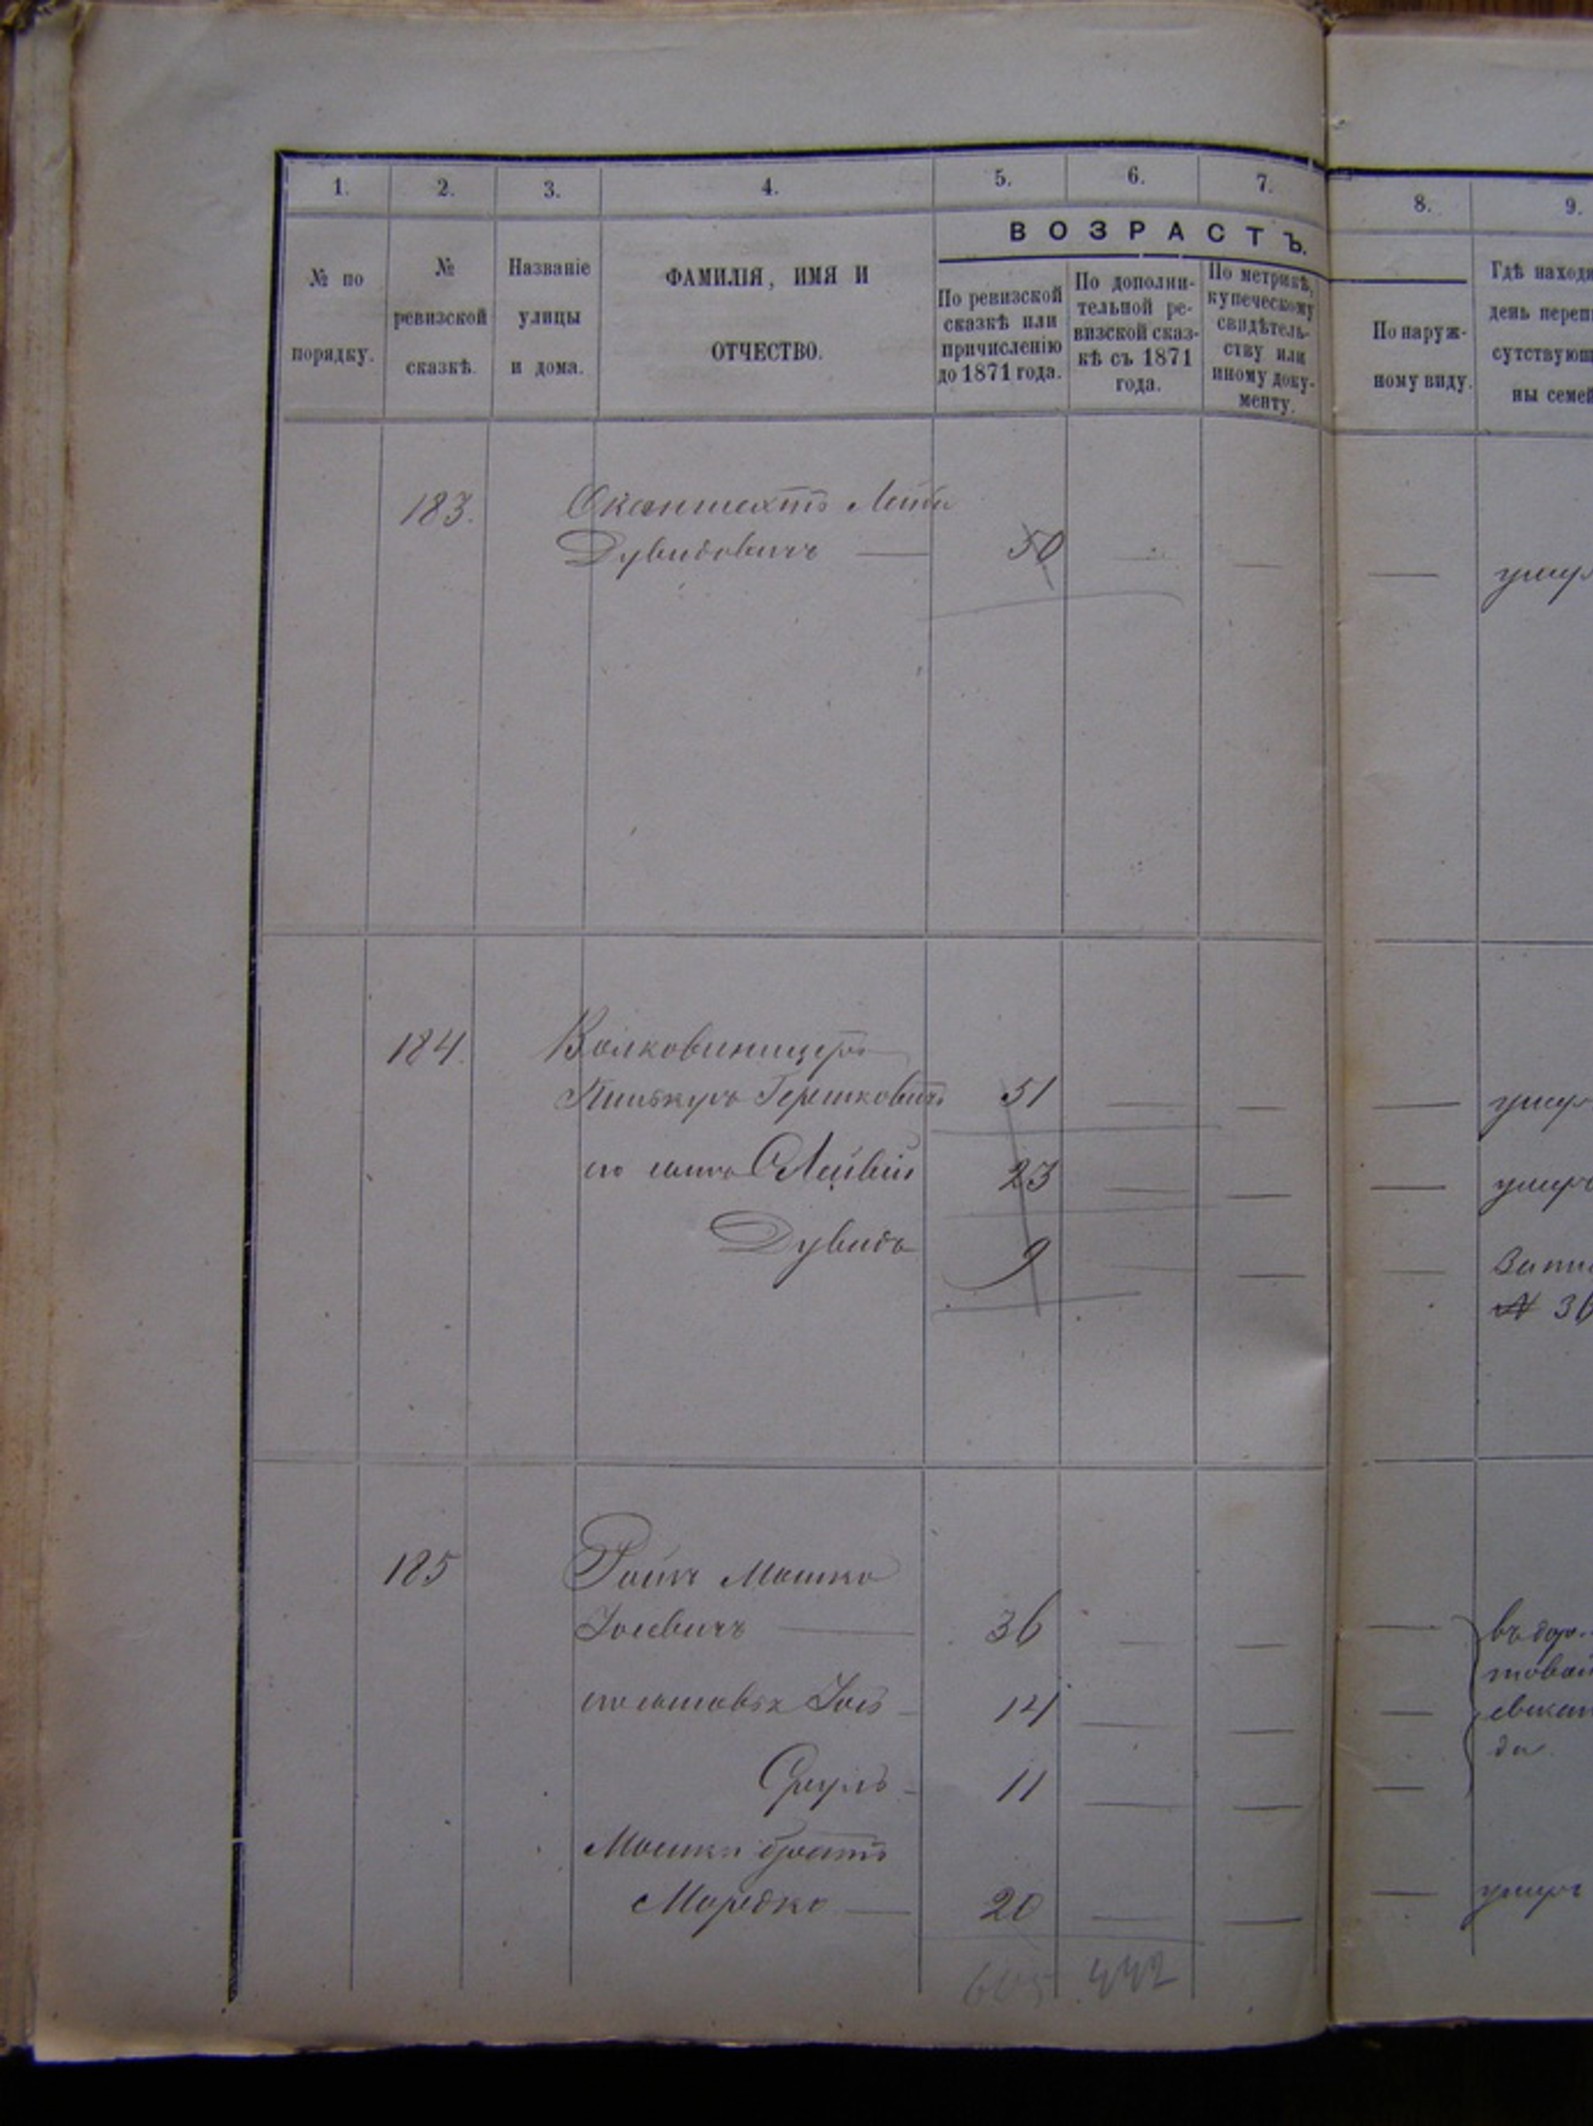 1. 2. 3. 4. 5. 6. 7. 8. 9.
№ по порядку.
№ ревизской сказкѣ.
Названіе улицы и дома.
ФАМИЛІЯ, ИМЯ И ОТЧЕСТВО.
ВОЗРАСТЪ.
По ревизской сказкѣ или причисленію до 1871 года.
По дополни-тельной ре-визской сказ-кѣ съ 1871 года.
По метрикѣ, купеческому свидѣтель-ству или иному доку-менту.
По наруж-ному виду.
Гдѣ находи
день переп
сутствующ
ны семей
183. Лейба
Дувидовичъ — 50 — — — умер
184. Волковиницеръ
Гершковичъ 51 — — — умер
его сынъ Лейвій 23 — — — умеръ
Дувидъ 9 — — — Запи
№ 36
185 Ройт Мошко
Іосевичъ — 36 — — —
его сыновья Іось 14 — — —
Сруль 11 — — —
Мошки братъ
Мордко — 20 — — — умеръ
442